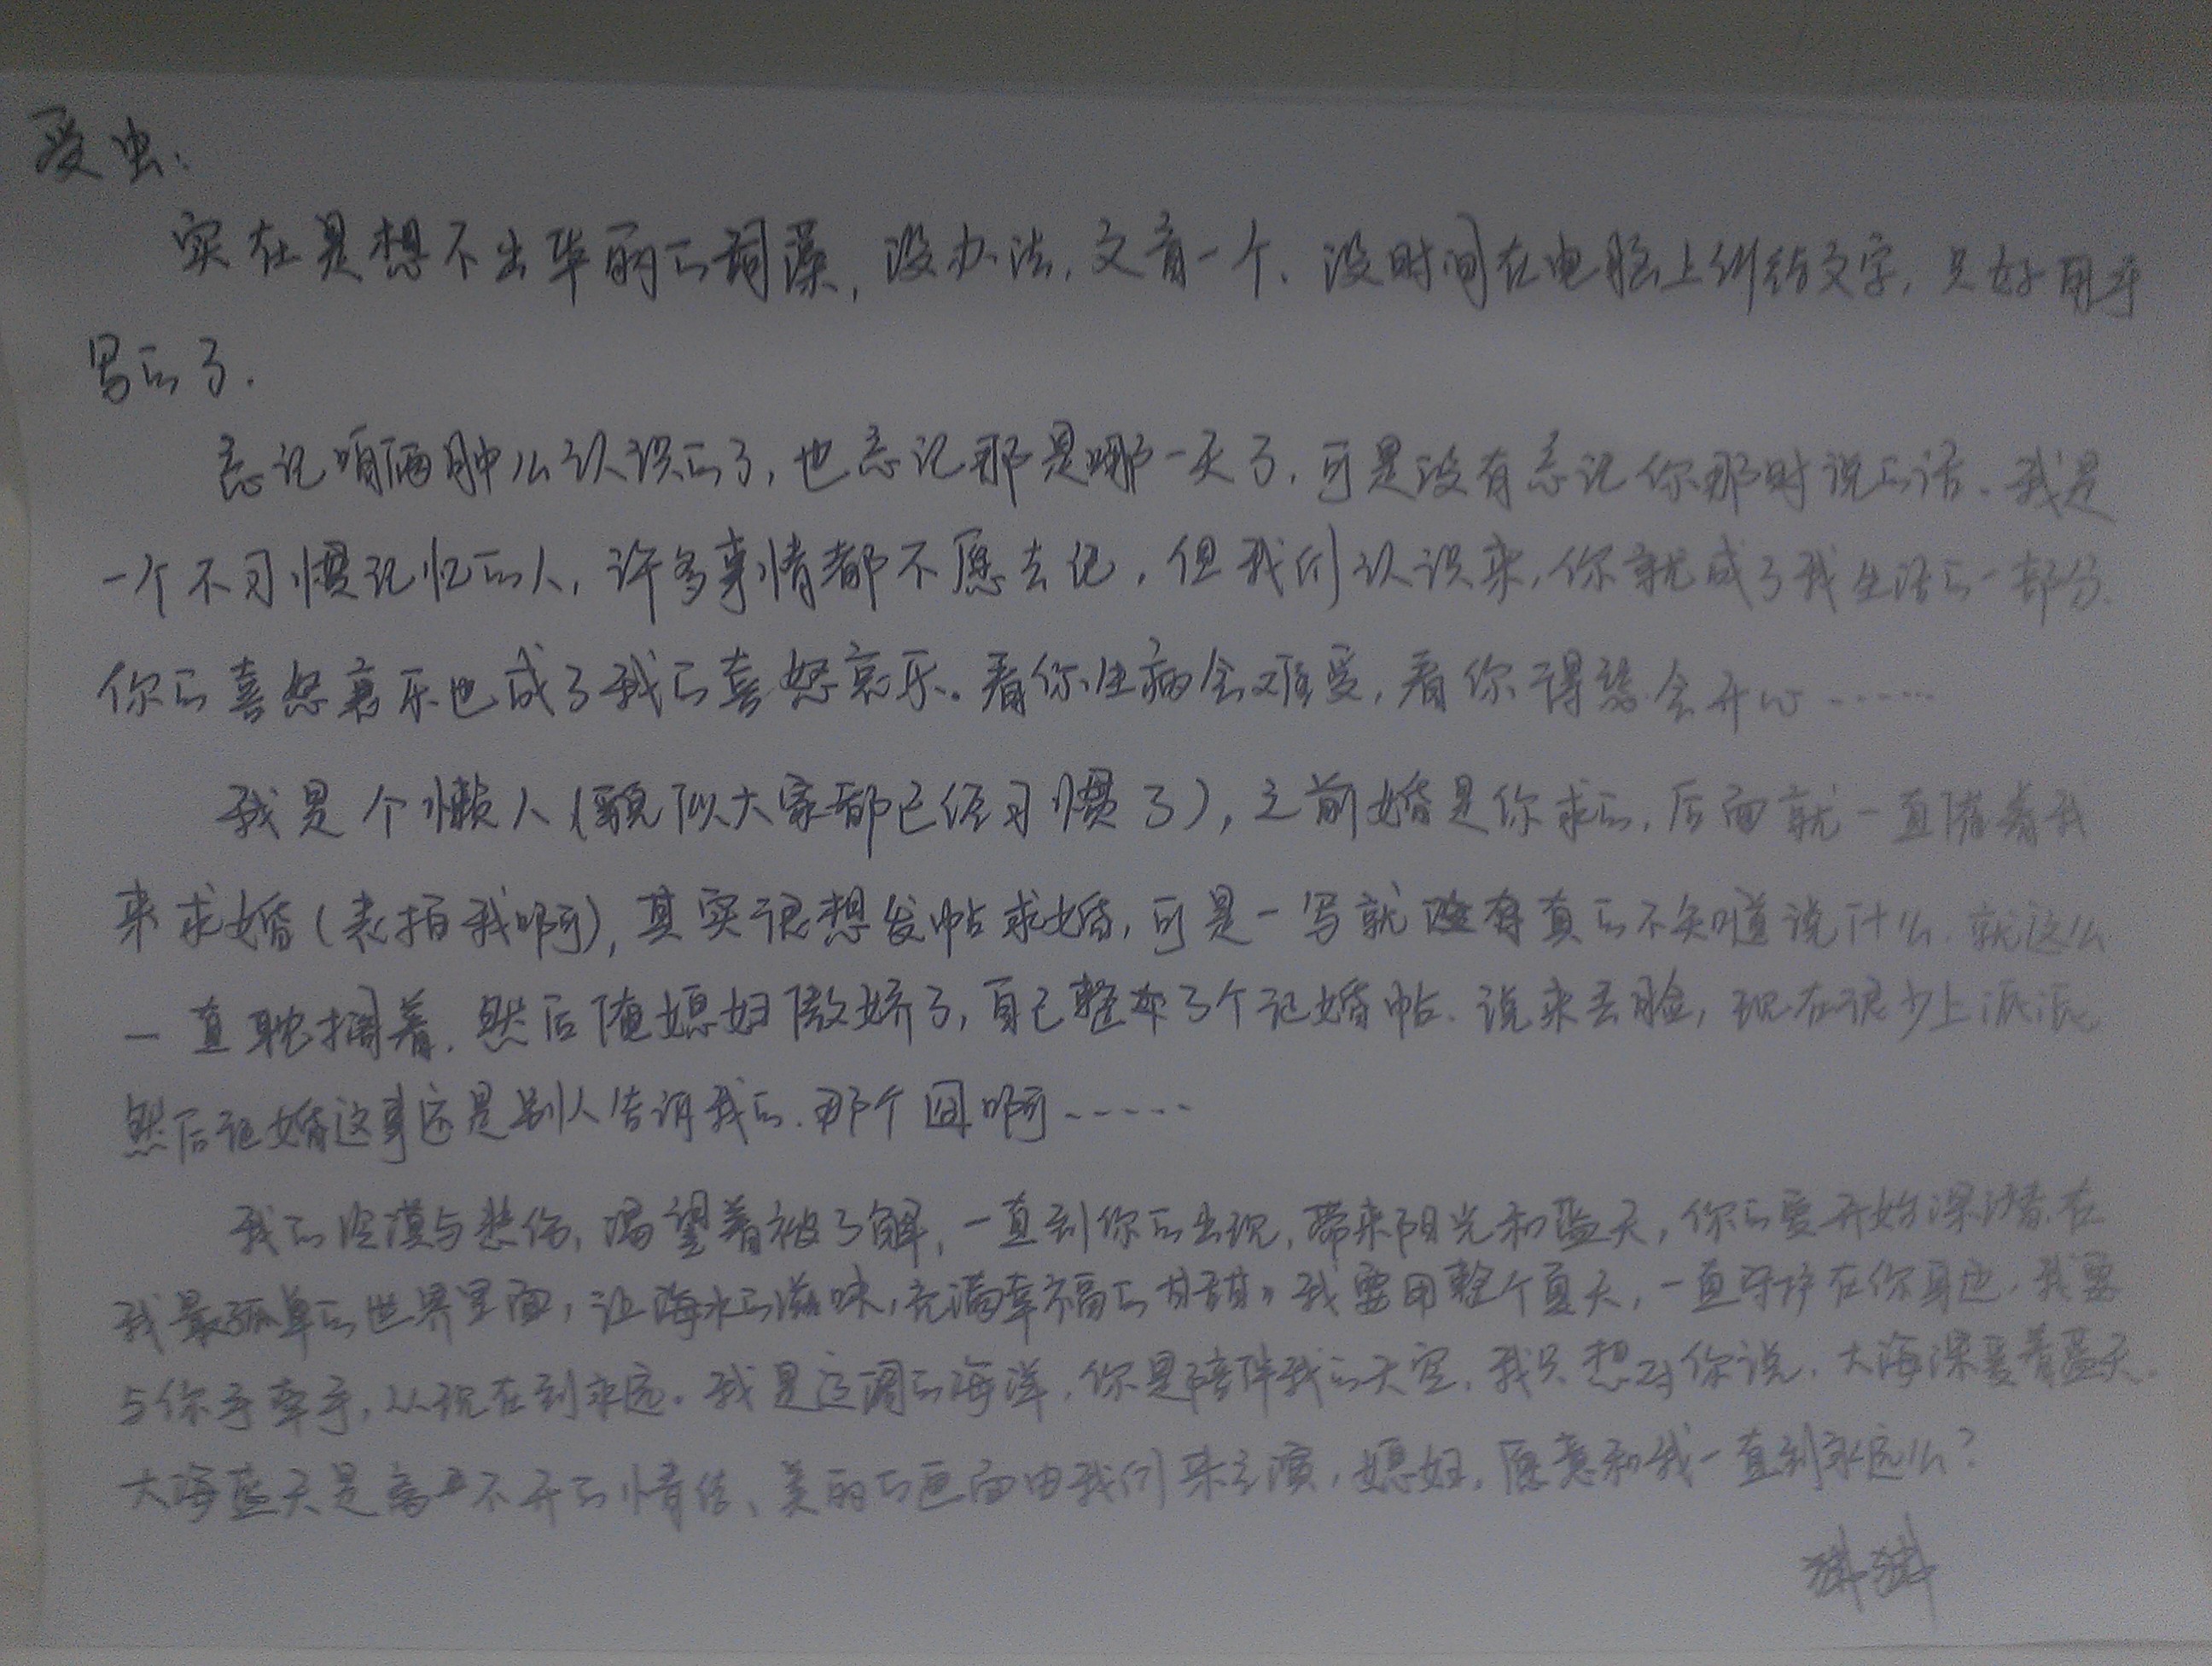 爱虫:
实在是想不出华丽的词藻,没办法,文盲一个.没时间在电脑上纠结文字,只好用手
写的了.
忘记咱俩肿么认识的了,也忘记那是哪一天了.可是没有忘记你那时说的话.我是
一个不习惯记忆的人,许多事情都不愿去记,但我们认识来,你就成了我生活的一部分.
你的喜怒哀乐也成了我的喜怒哀乐。看你生病会难受,看你得瑟会开心……
我是个懒人(貌似大家都已经习惯了),之前婚是你求的,后面就一直催着我
来求婚(表拍我啊),其实很想发帖求婚,可是一写就 真的不知道说什么.就这么
一直耽搁着.然后俺媳妇傲娇了,自己整了个记婚帖.说来丢脸,现在很少上派派,
然后记婚这事还是别人告诉我的.那个囧啊……
我的冷漠与悲伤,渴望着被了解,一直到你的出现,带来阳光和蓝天,你的爱开始深潜在
我最孤单的世界里面,让海水的滋味,充满幸福的甘甜。我要用整个夏天,一直守护在你身边.我要
与你手牵手,从现在到永远。我是辽阔的海洋,你是陪伴我的天空,我只想对你说,大海深爱着蓝天.
大海蓝天是离不开的情侣、美丽的画面由我们来主演,媳妇,愿意和我一直到永远么?